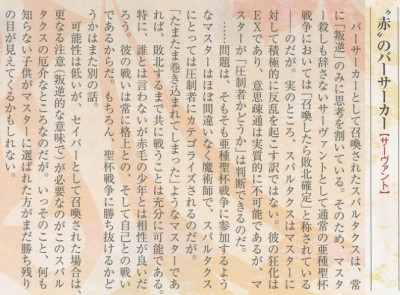 “赤”のバーサーカー【サーヴァント】
バーサーカーとして召喚されたスパルタクスは、常
に「叛逆」のみに思考を割いている。そのため、マスタ
ー殺しも辞さないサーヴァントとして通常の亜種聖杯
戦争においては「召喚したら敗北確定」と称されている
――のだが。実のところ、スパルタクスはマスターに
対して積極的に反乱を起こす訳ではない。彼の狂化は
EXであり、意思疎通は実質的に不可能であるが、マ
スターが「圧制者かどうか」は判断できるのだ。
……問題は、そもそも亜種聖杯戦争に参加するよう
なマスターはほぼ間違いなく魔術師で、スパルタクス
にとっては圧制者にカテゴライズされるのだが。
「たまたま巻き込まれてしまった」ようなマスターであ
れば、敗北するまで共に戦うことは充分に可能である。
特に、誰とは言わないが赤毛の少年とは相性が良いだ
ろう。彼の戦いは常に格上との、そして自己との戦い
であるからだ。もちろん、聖杯戦争に勝ち抜けるかど
うかはまた別の話。
可能性は低いが、セイバーとして召喚された場合は、
更なる注意（叛逆的な意味で）が必要なのがこのスパル
タクスの厄介なところなのだが、いっそのこと、何も
知らない子供がマスターに選ばれた方がまだ勝ち残り
の目が見えてくるかもしれない。